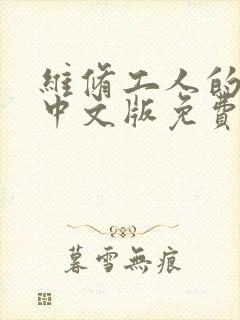 維脩工人的
中文版免費
暮雪無痕